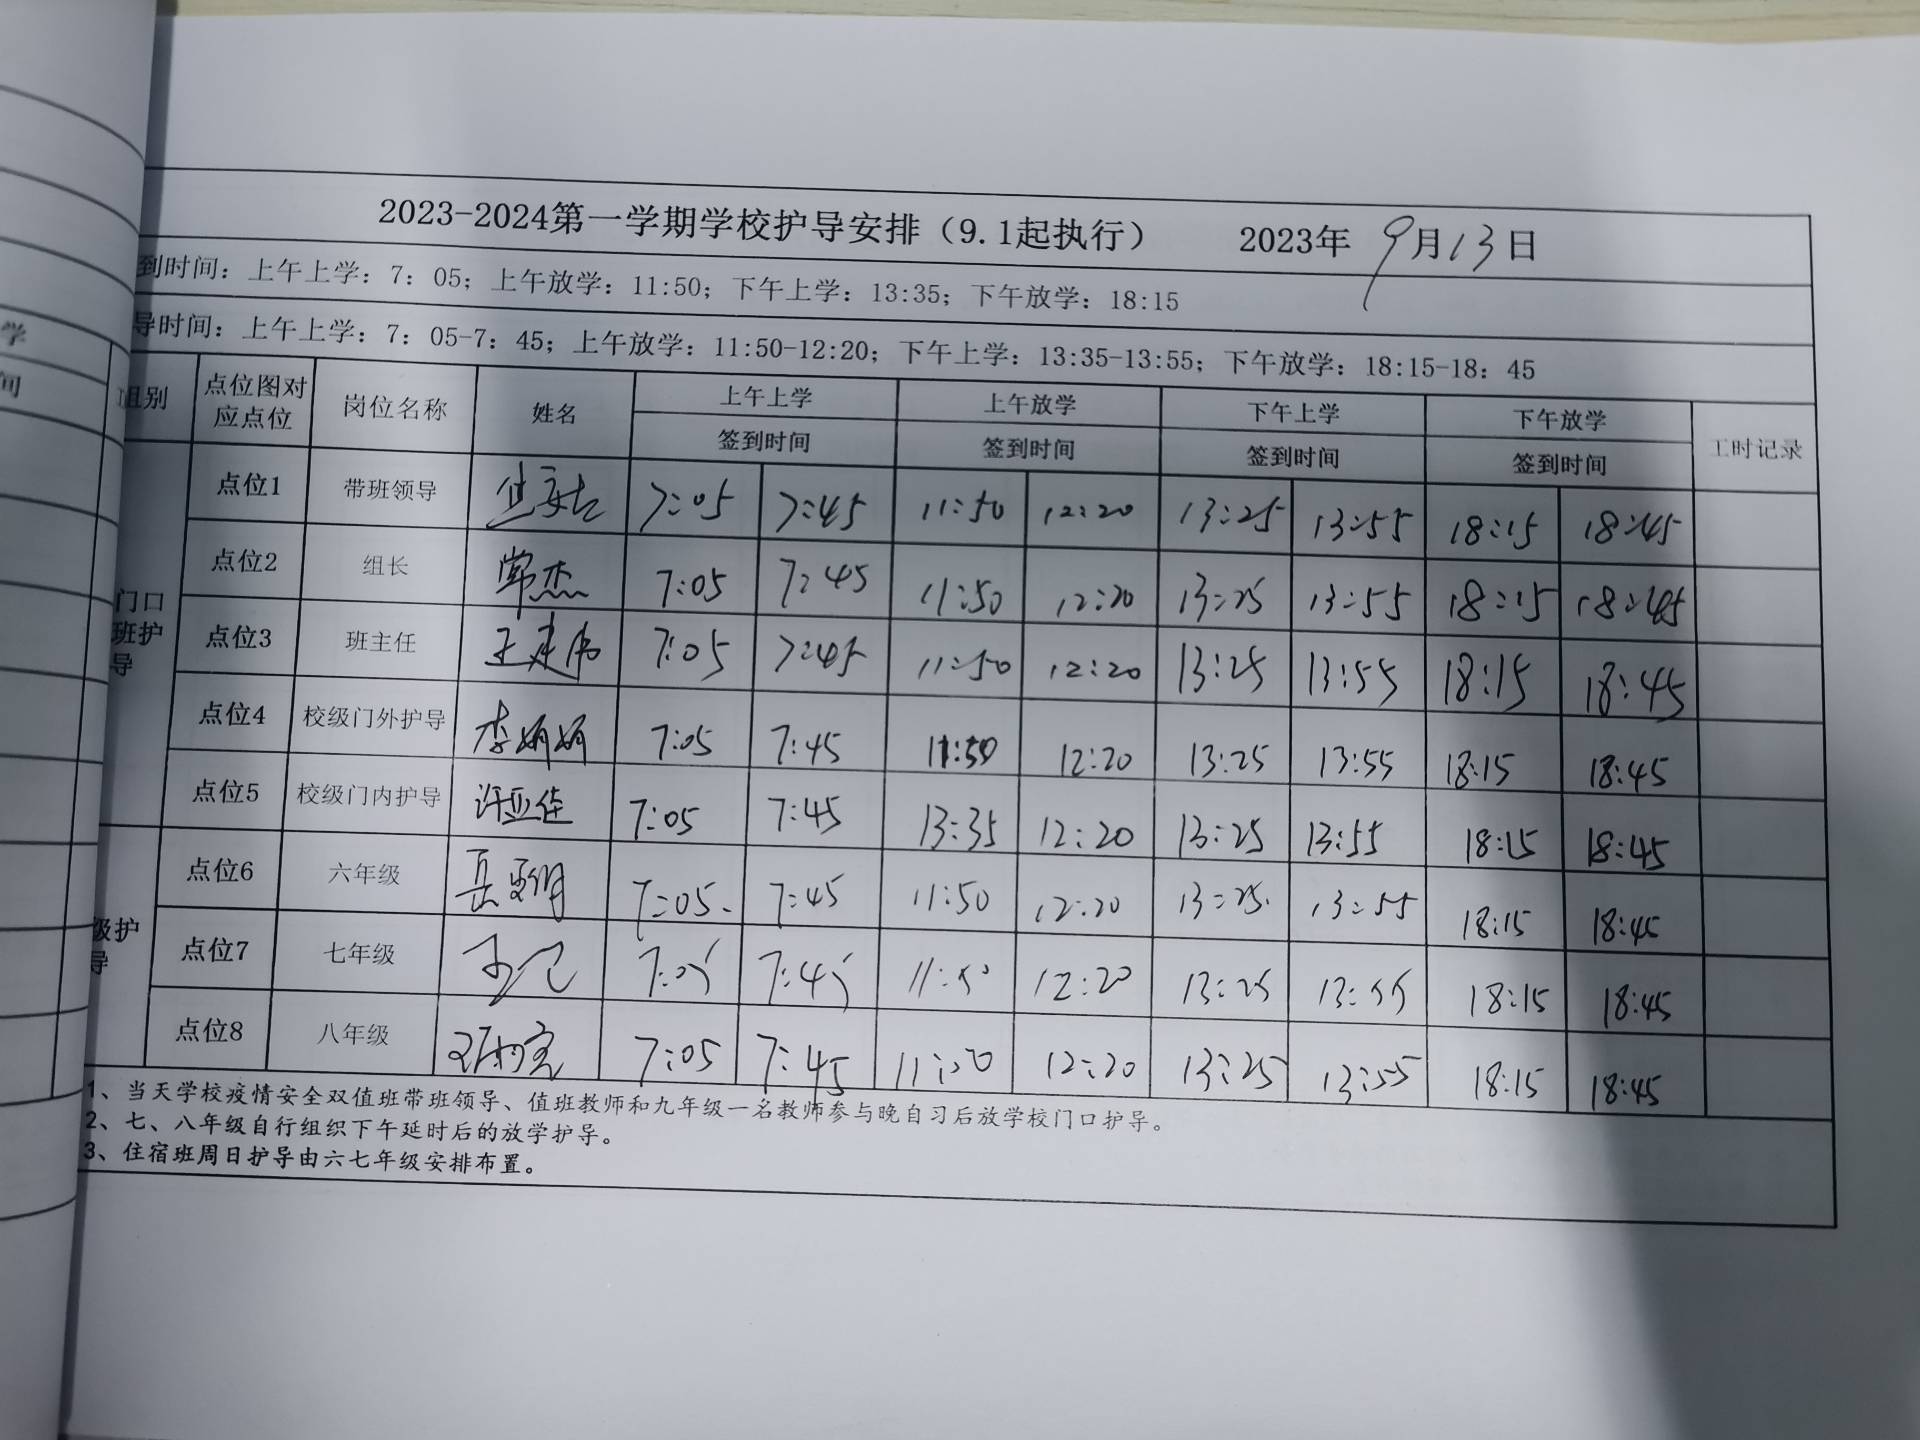 学
间
2023-2024第一学期学校护导安排（9.1起执行） 2023年 9月13日
到时间：上午上学：7：05；上午放学：11:50；下午上学：13:35；下午放学：18:15
导时间：上午上学：7：05-7：45；上午放学：11:50-12:20；下午上学：13:35-13:55；下午放学：18:15-18：45
组别 点位图对应点位 岗位名称 姓名 上午上学 上午放学 下午上学 下午放学 工时记录
签到时间 签到时间 签到时间 签到时间
门口班护导
点位1 带班领导 7:05 7:45 11:50 12:20 13:25 13:55 18:15 18:45
点位2 组长 常杰 7:05 7:45 11:50 12:20 13:25 13:55 18:15 18:45
点位3 班主任 王建伟 7:05 7:45 11:50 12:20 13:25 13:55 18:15 18:45
点位4 校级门外护导 李娟娟 7:05 7:45 11:50 12:20 13:25 13:55 18:15 18:45
点位5 校级门内护导 许亚佳 7:05 7:45 13:35 12:20 13:25 13:55 18:15 18:45
级护导
点位6 六年级 7:05 7:45 11:50 12:20 13:25 13:55 18:15 18:45
点位7 七年级 7:05 7:45 11:50 12:20 13:25 13:55 18:15 18:45
点位8 八年级 7:05 7:45 11:50 12:20 13:25 13:55 18:15 18:45
1、当天学校疫情安全双值班带班领导、值班教师和九年级一名教师参与晚自习后放学校门口护导。
2、七、八年级自行组织下午延时后的放学护导。
3、住宿班周日护导由六七年级安排布置。